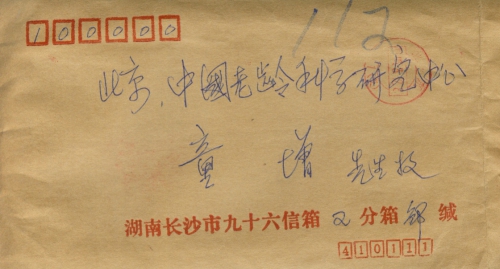 100000
112
北京.中國老龄科学研究中心
童增 先生 收
湖南长沙市九十六信箱 又 分箱 邹 缄
410111